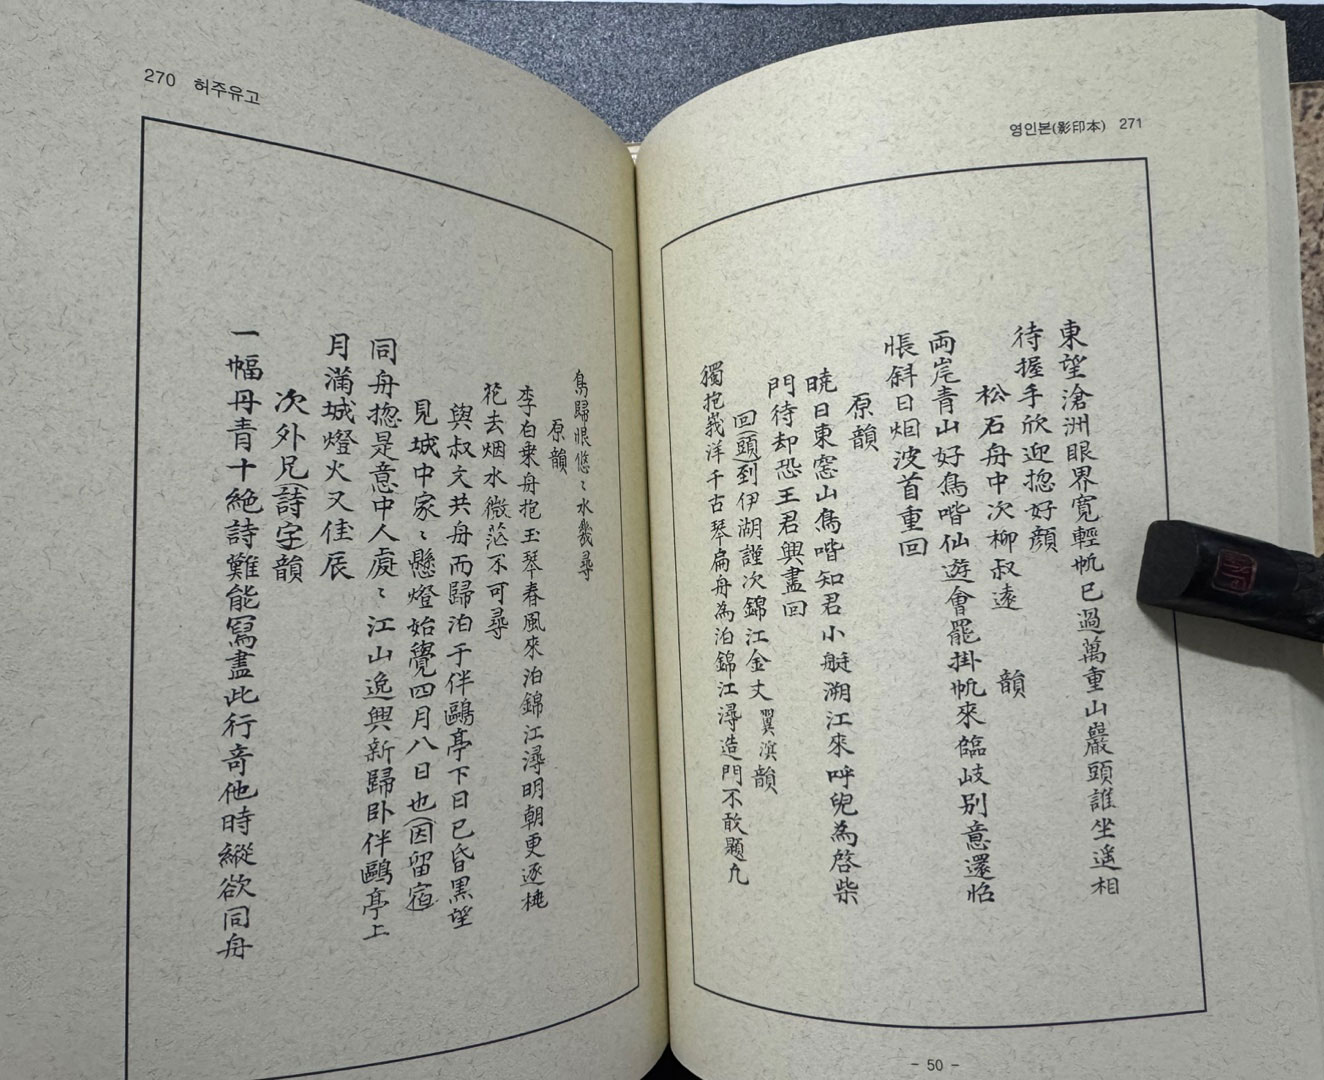 영인본(影印本) 271
東望滄洲眼界寬輕帆已過萬重山巖頭誰坐遥相
待握手欣迎揔好顔
松石舟中次柳叔遠 韻
兩岸青山好鳥喈仙遊會罷掛帆來臨岐別意還怊
悵斜日烟波首重回
原韻
曉日東窓山鳥喈知君小艇溯江來呼兒為啓柴
門待却恐王君興盡回
回(頭)到伊湖謹次錦江金丈 翼濵 韻
獨抱峩洋千古琴扁舟為泊錦江潯造門不敢題凡
- 50 -
270 허주유고
鳥歸恨悠〻水幾尋
原韻
李白乘舟抱玉琴春風來泊錦江潯明朝更逐桃
花去烟水微茫不可尋
與叔文共舟而歸泊于伴鷗亭下日已昏黑望
見城中家〻懸燈始覺四月八日也(因留宿)
同舟揔是意中人處〻江山逸興新歸卧伴鷗亭上
月滿城燈火又佳辰
次外兄(詩字)韻
一幅丹青十絶詩難能寫盡此行竒他時縱欲同舟